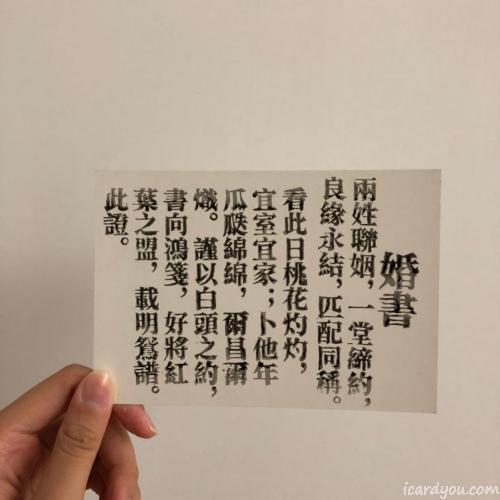 婚書
兩姓聯姻，一堂締約，
良緣永結，匹配同稱。
看此日桃花灼灼，
宜室宜家；卜他年
瓜瓞綿綿，爾昌爾
熾。謹以白頭之約，
書向鴻箋，好將紅
葉之盟，載明鴛譜。
此證。
icardyou.com